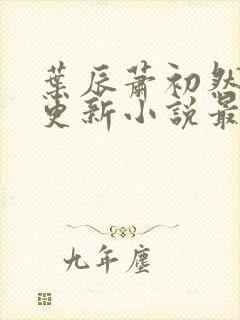 葉辰蕭初然
更新小說最
九年塵